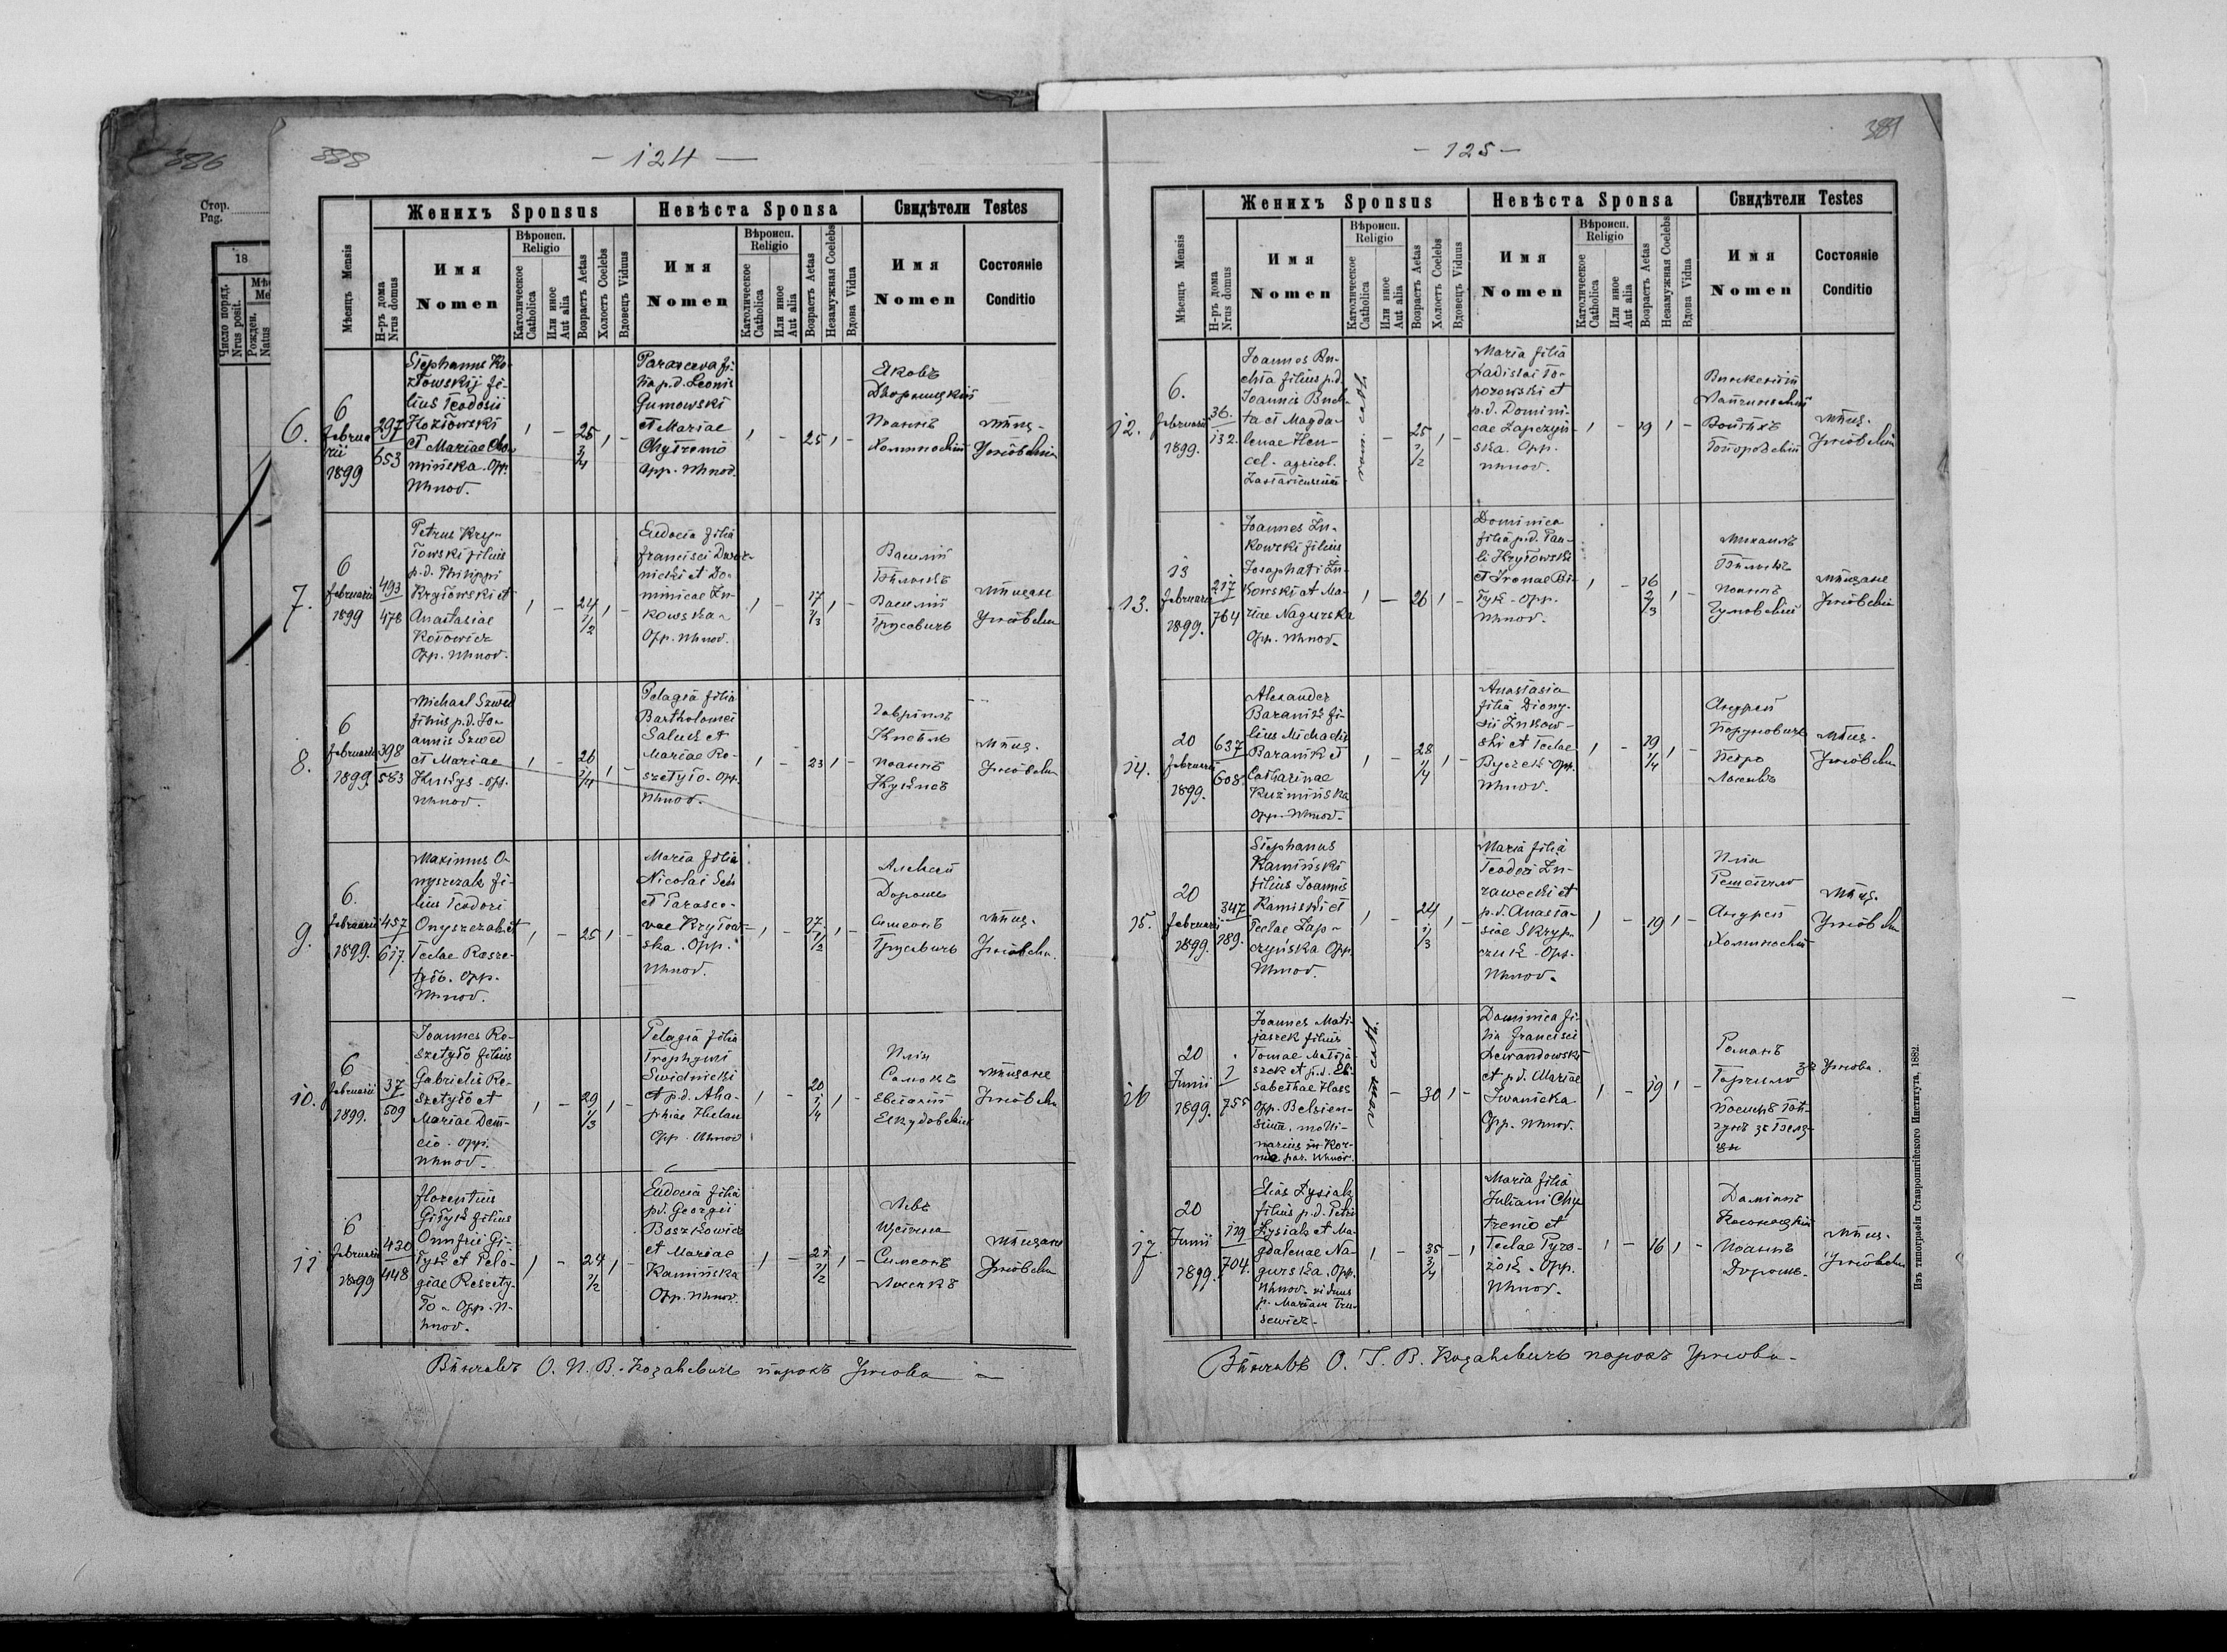 386
Стор.
Pag.
18
Число поряд.
Nrus posit.
Рожден.
Natus
388
- 124 -
Мѣсяцъ Mensis
Н-ръ дома
Nrus domus
Женихъ Sponsus
Невѣста Sponsa
Свидѣтели Testes
Имя
Nomen
Вѣроисп.
Religio
Католическое
Catholica
Или иное
Aut alia
Возрастъ Aetas
Холостъ Coelebs
Вдовецъ Viduus
Имя
Nomen
Вѣроисп.
Religio
Католическое
Catholica
Или иное
Aut alia
Возрастъ Aetas
Незамужная Coelebs
Вдова Vidua
Имя
Nomen
Состояніе
Conditio
6.
6
februa
rii
1899
297
653
Stephanus Ko-
złowskij fi-
lius Teodosii
Kozłowski
et Mariae
mińska. Opp.
Uhnov.
1 - 25 3/4 1 -
Parasceva fi-
lia p.d. Leonis
Gumowski
et Mariae
Chytreniο
opp. Uhnov.
1 - 25 1 -
Яковъ
Дворницкій
Іоаннъ
Хоминскій
мѣщ.
Угнôвскіи
7.
6
februarii
1899
493
478
Petrus Kry-
łowski filius
p.d. Philippi
Kryłowski et
Anastasiae
Kotowicz
Opp. Uhnov.
1 - 24 1/2 1 -
Eudocia filia
francisci Dwor-
nicki et Do-
minicae Zu-
kowska
Opp. Uhnov.
1 - 17 1/3 1 -
Василій
Василій
Трусевичъ
мѣщане
Угнôвскіи
8.
6
februarii
1899.
398
583
Michael Szwed
filius p.d. Jo-
annis Szwed
et Mariae
opp.
Uhnov.
1 - 26 1/4 1 -
Pelagia filia
Bartholomei
Saluk et
Mariae Re-
szetyło. Opp.
Uhnov.
1 - 23 1 -
Гавріилъ
Іоаннъ
мѣщ.
Угнôвскіи
9.
6.
februarii
1899.
457
617.
Maximus O-
nyszczak fi-
lius Teodori
Onyszczak et
Teclae Resze-
tyło. Opp.
Uhnov.
1 - 25 1 -
Maria filia
Nicolai Seh
et Parasce-
vae Kryłow-
ska. Opp.
Uhnov.
1 - 17 1/2 1 -
Алексій
Дорошъ
Симеонъ
Трусевичъ
мѣщ.
Угнôвскіи.
10.
6
februarii
1899.
37
509
Joannes Re-
szetyło filius
Gabrielis Re-
szetyło et
Mariae Dem-
cio. Opp.
Uhnov.
1 - 29 1/3 1 -
Pelagia filia
Trophymi
Swidnicki
et p.d. Aha-
phiae Hulau
Opp. Uhnov
1 - 20 1/4 1 -
Илія
Евстахій
мѣщане
Угнôвскіи
11
6
februarii
1899
430
448
Florentius
Giłyk filius
Onufrii Gi-
łyk et Pela-
giae Reszety-
ło. Opp. U-
hnov.
1 - 24 1/2 1 -
Eudocia filia
p.d. Georgii
Boszkowicz
et Mariae
Kamińska
Opp. Uhnov.
1 - 21 1/2 1 -
Левъ
Симеонъ
мѣщане
Угнôвскіи
Вѣнчавъ О. И. В. Козакевичъ парохъ Угнова
389
- 125 -
Мѣсяцъ Mensis
Н-ръ дома
Nrus domus
Женихъ Sponsus
Невѣста Sponsa
Свидѣтели Testes
Имя
Nomen
Вѣроисп.
Religio
Католическое
Catholica
Или иное
Aut alia
Возрастъ Aetas
Холостъ Coelebs
Вдовецъ Viduus
Имя
Nomen
Вѣроисп.
Religio
Католическое
Catholica
Или иное
Aut alia
Возрастъ Aetas
Незамужная Coelebs
Вдова Vidua
Имя
Nomen
Состояніе
Conditio
12.
6.
februarii
1899.
36.
132.
Joannes Bu-
chta filius p.d.
Joannis Buch-
ta et Magda-
lenae Hen-
cel. agricol.
rom. cath.
- 25 1/2 1 -
Maria filia
Ladislai To-
porowski et
p.d. Domini-
cae Łapczyń-
ska. Opp.
Uhnov.
1 - 19 1 -
Викентій
Войтѣхъ
Топоровскій
мѣщ.
Угнôвскіи
13.
13
februarii
1899.
217
764
Joannes Żu-
kowski filius
Josaphati Żu-
kowski et Ma-
riae Nagurska
Opp. Uhnov.
1 - 26 1 -
Dominica
filia p.d. Pau-
li Kryłowski
et Irenae Bi-
łyk. Opp.
Uhnov.
1 - 16 2/3 1 -
Михаилъ
Іоаннъ
Гумовскій
мѣщане
Угнôвскіи
14.
20
februarii
1899.
637
608.
Alexander
Baranik fi-
lius Michaelis
Baranik et
Catharinae
Kuźmińska
Opp. Uhnov.
1 - 28 1/4 1 -
Anastasia
filia Diony-
sii Żukow-
ski et Teclae
Byczek. Opp.
Uhnov.
1 - 19 1/4 1 -
Андрей
Петро
мѣщ.
Угнôвскіи
15.
20
februarii
1899.
347
189.
Stephanus
Kamiński
filius Joannis
Kamiński et
Teclae Łap-
czyńska Opp.
Uhnov.
1 - 24 1/3 1 -
Maria filia
Teodori Żu-
rawecki et
p.d. Anasta-
siae Skryp-
czuk. Opp.
Uhnov.
1 - 19 1 -
Илія
Решетило
Андрей
Хоминскій
мѣщ.
Угнôвскіи
16
20
Junii
1899.
1
755
Joannes Mati-
jaszek filius
Tomae Matija-
szek et p.d. Eli-
sabethae Hass
Opp. Belsien-
sium, moli-
narius in Kor-
nie par. Uhnov.
rom. cath.
- 30 1 -
Dominica fi-
lia francisci
Lewandowski
et p.d. Mariae
Iwanicka
Opp. Uhnov.
1 - 19 1 -
Романъ
Торчило
зъ Угнова.
17
20
Junii
1899.
119
704.
Elias Łysiak
filius p.d. Petri
Łysiak et Ma-
gdalenae Na-
gurska. Opp.
Uhnov. viduus
p. Mariam Tru-
sewicz.
1 - 35 3/4 - 1
Maria filia
Juliani Chy-
trenio et
Teclae Pyro-
żok. Opp.
Uhnov.
1 - 16 1 -
Даміанъ
Іоаннъ
Дорошъ.
мѣщ.
Угнôвскіи
Вѣнчавъ О. І. В. Козакевичъ парохъ Угнова
Изъ типографіи Ставропигійского Института, 1882.